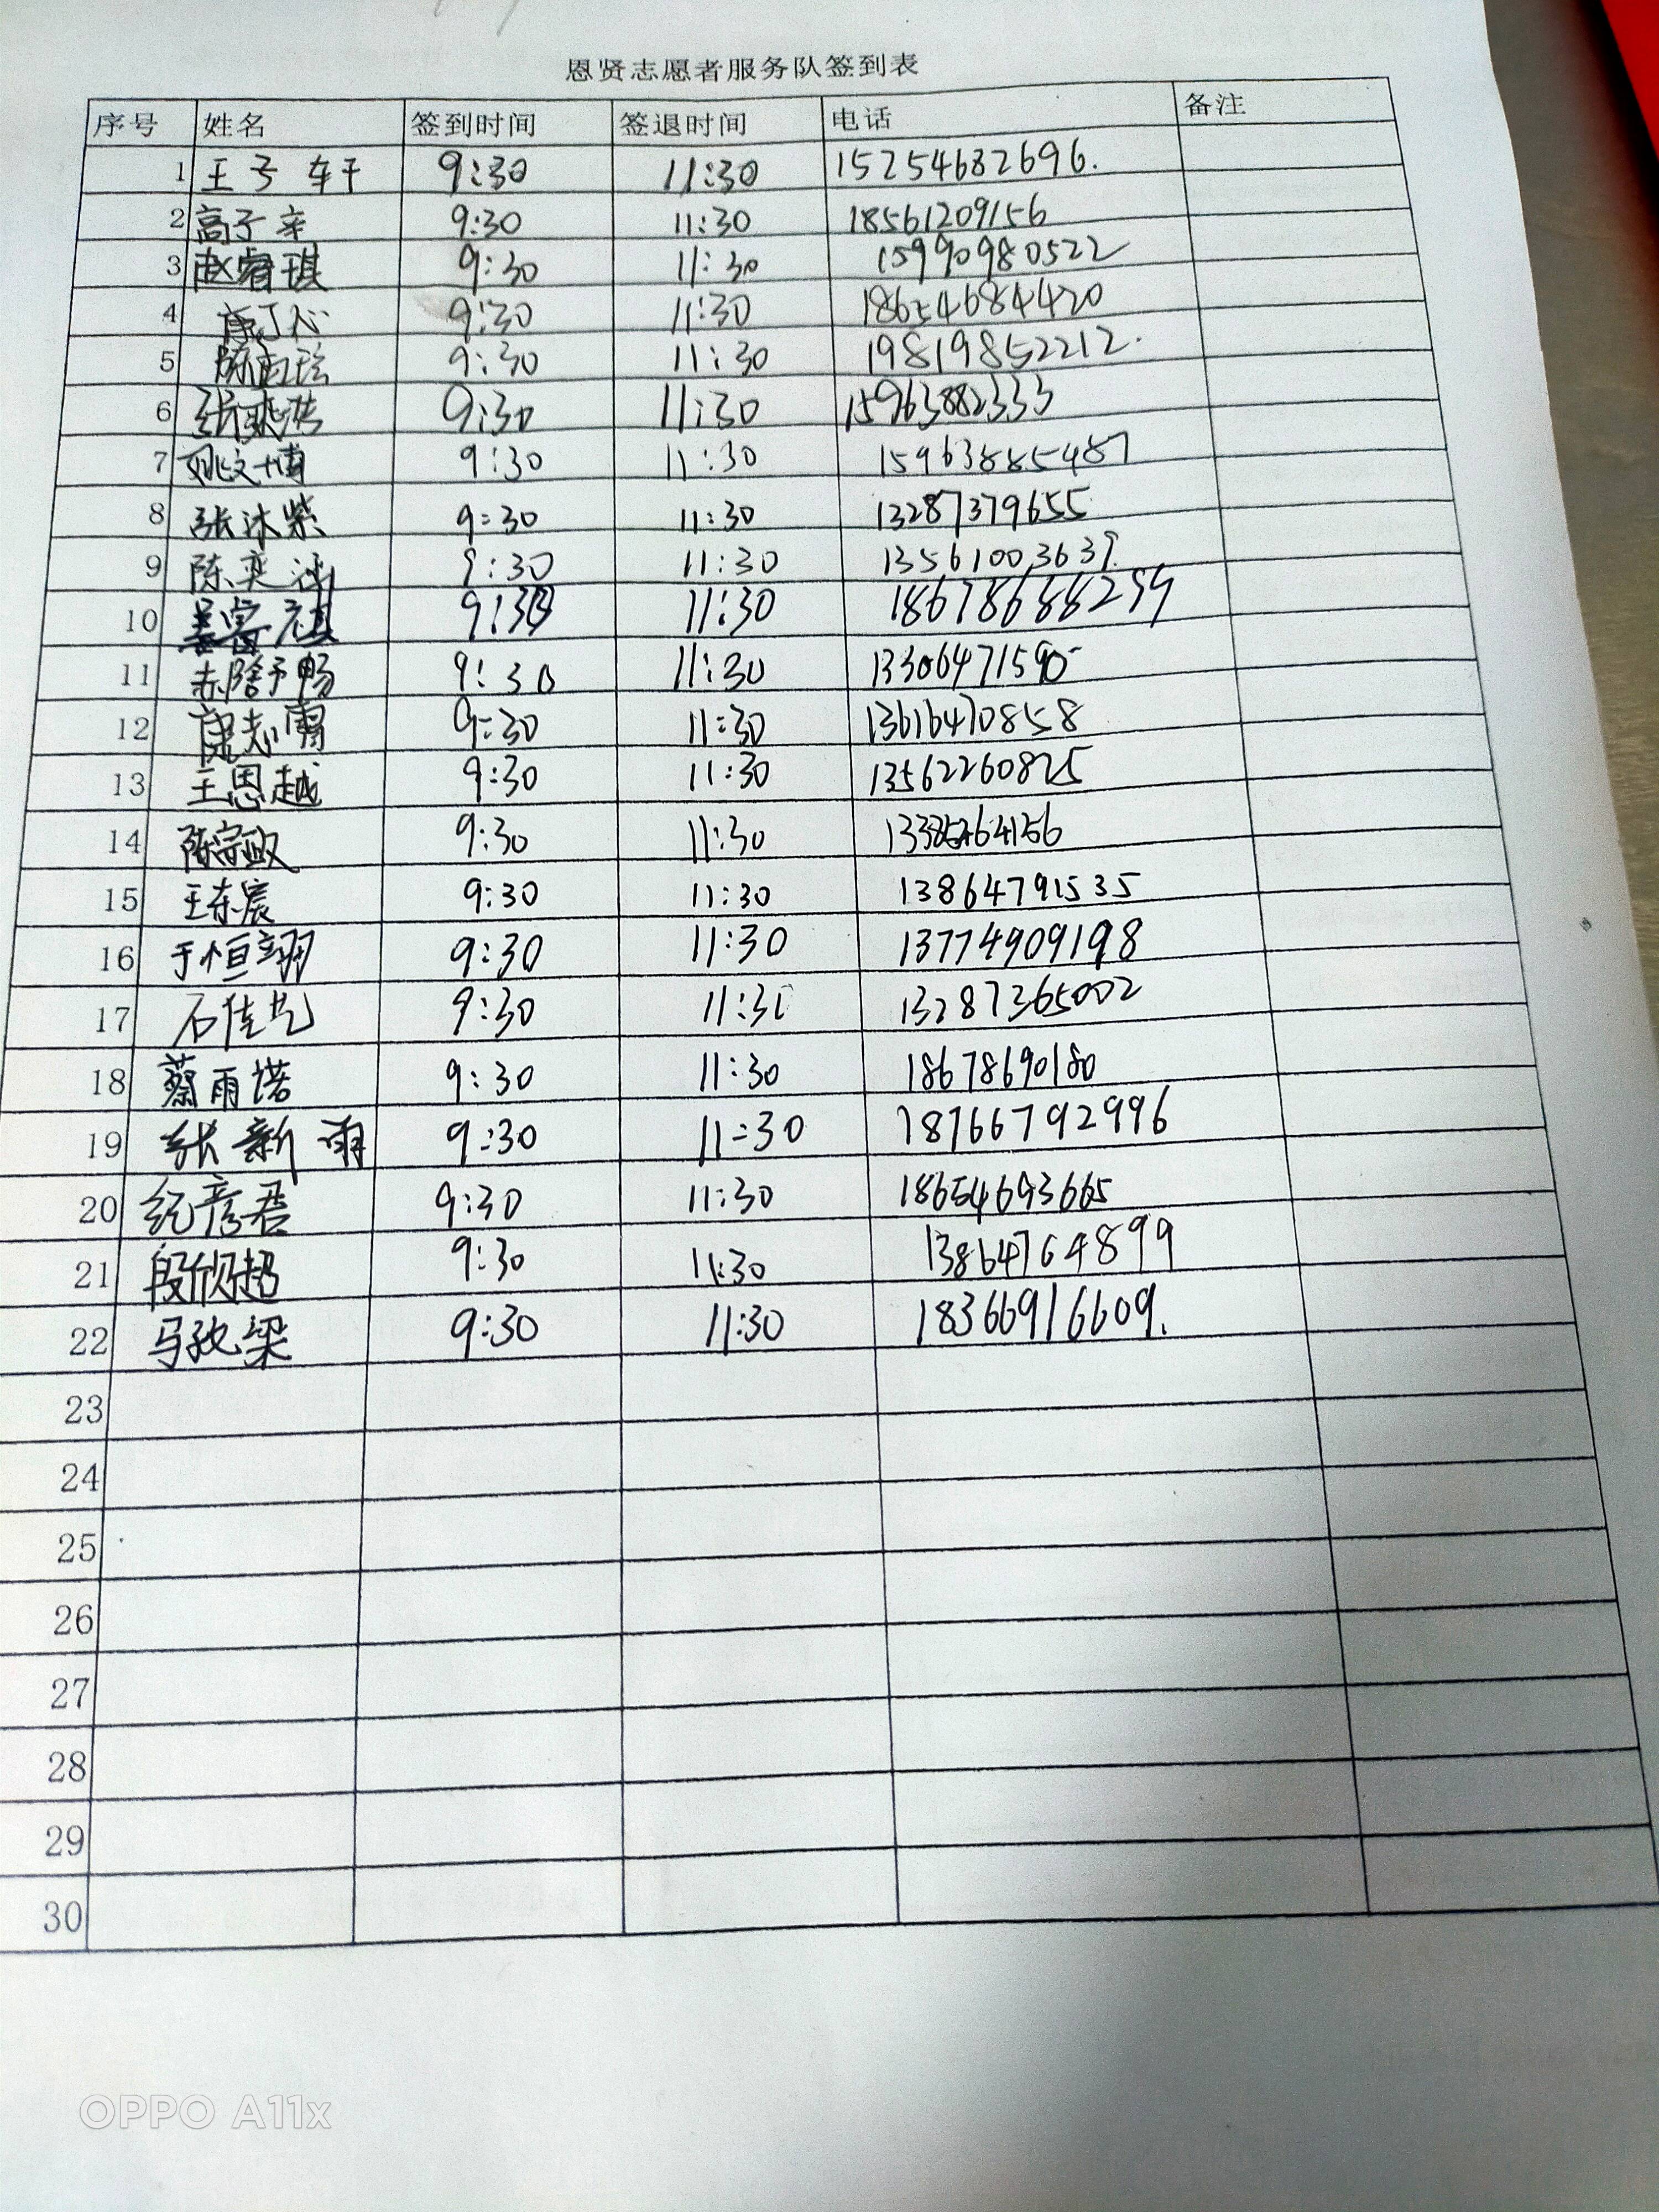 恩贤志愿者服务队签到表
序号 姓名 签到时间 签退时间 电话 备注
1 王子轩 9:30 11:30 15254682696.
2 高子辛 9:30 11:30 18561209156
3 赵睿琪 9:30 11:30 15990980522
4 9:30 11:30 18654684420
5 9:30 11:30 19819852212.
6 9:30 11:30 15963882333
7 姚文博 9:30 11:30 15963885487
8 张沐紫 9:30 11:30 13287379655
9 陈奕 9:30 11:30 13561003639.
10 9:30 11:30
11 9:30 11:30 13306471590
12 康志雷 9:30 11:30 13616470858
13 王恩越 9:30 11:30 13562260825
14 陈宗政 9:30 11:30
15 王东宸 9:30 11:30 13864791535
16 于恒翊 9:30 11:30 13774909198
17 石佳艺 9:30 11:30 13287365002
18 蔡雨诺 9:30 11:30 18678690180
19 张新雨 9:30 11:30 18766792996
20 纪彦君 9:30 11:30 18654693665
21 段欣超 9:30 11:30 13864764899
22 马孜梁 9:30 11:30 18366916609.
23
24
25
26
27
28
29
30
OPPO A11x